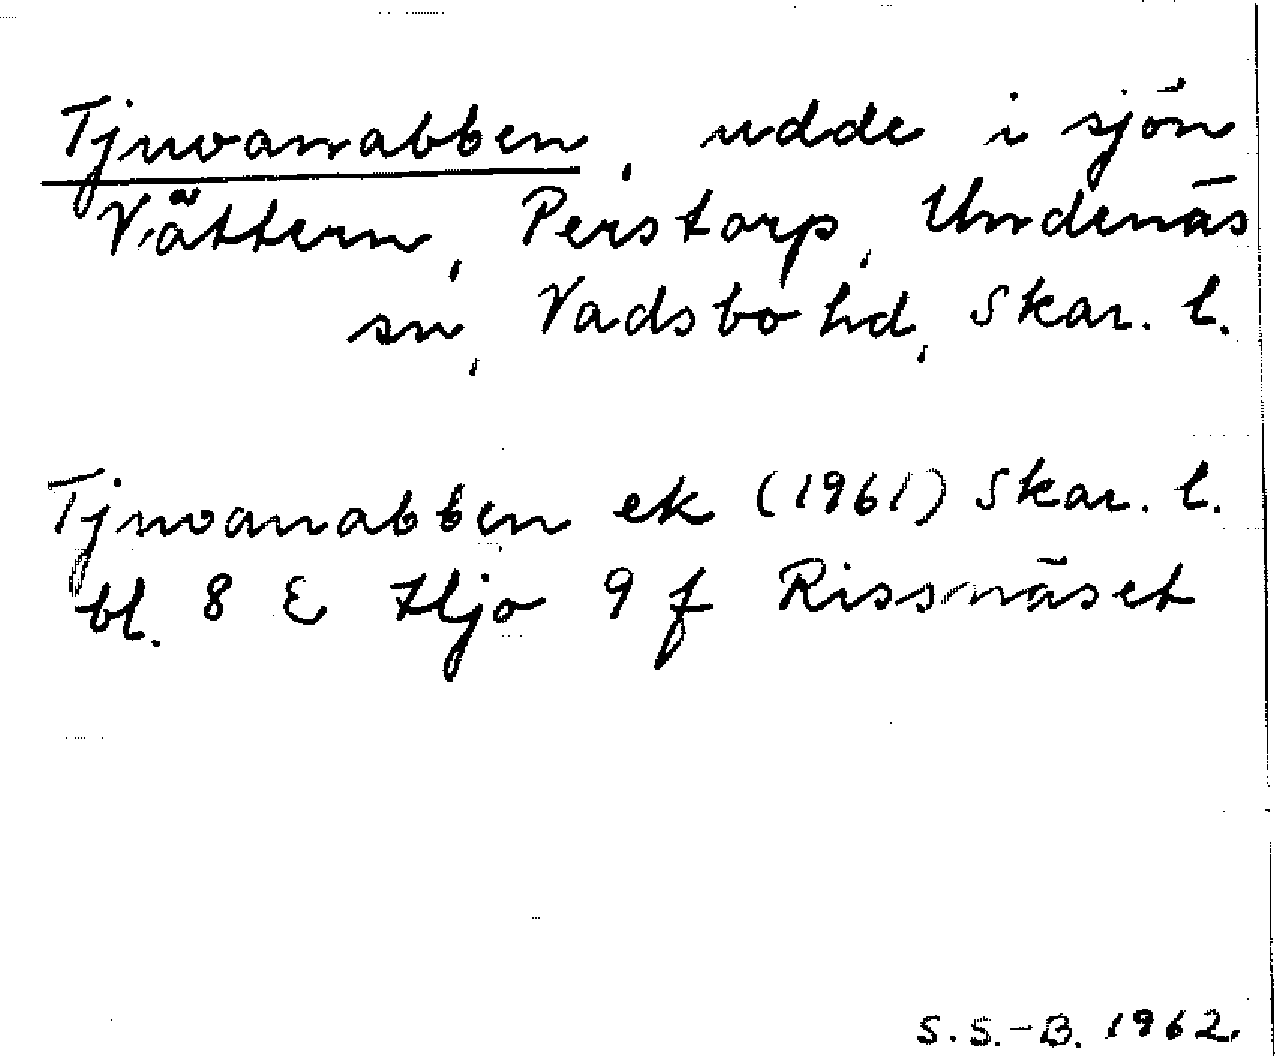 Tjuvanabben, udde i sjön
Vättern, Perstorp, Undenäs
sn, Vadsbo hd, Skar. l.
Tjuvanabben ek (1961) Skar. l.
bl. 8 E Hjo 9 f Rissnäset
S. S.-B. 1962.